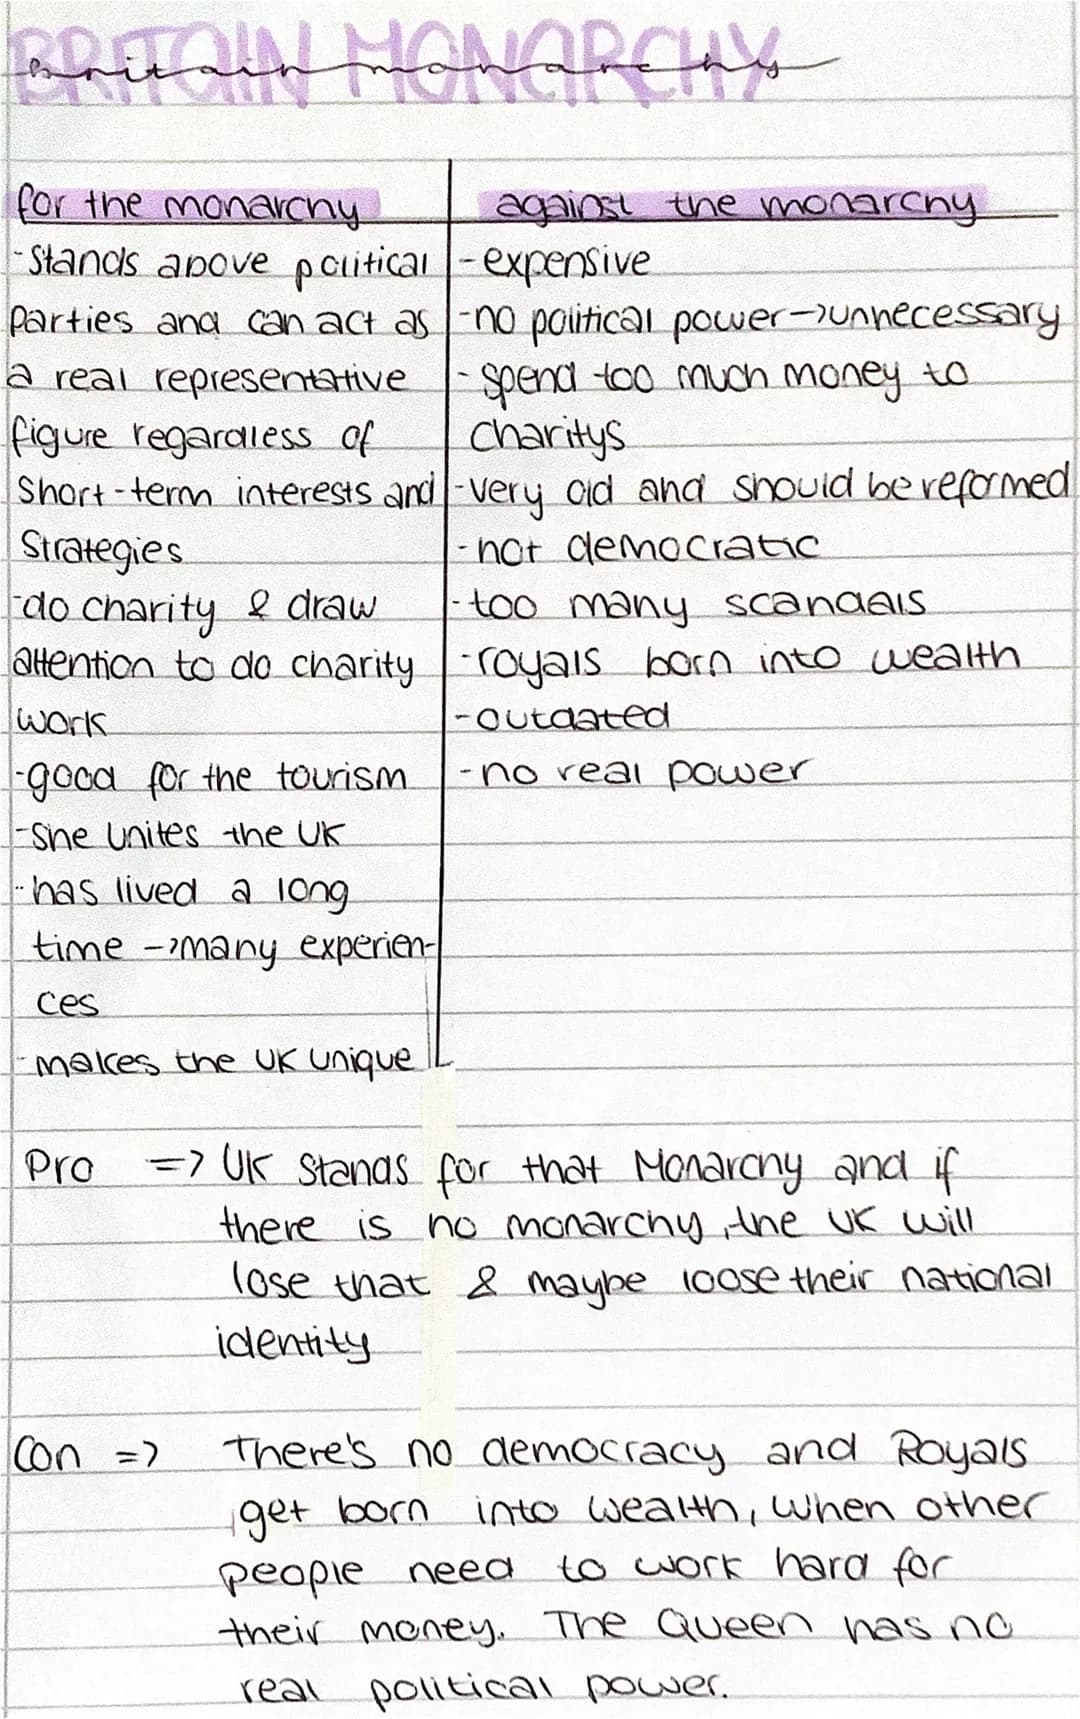 BRITAIN MONARCHY
Britain monarchy
for the monarchy
-Stands above political
parties and can act as
a real representative
figure regardless of
Short-term interests and
Strategies
-do charity & draw
attention to do charity
work
-good for the tourism
-She unites the UK
-has lived a long
time ->many experien-
ces
-makes the UK unique
against the monarchy
-expensive
-no political power->unnecessary
-spend too much money to
charitys
-very old and should be reformed
-not democratic
-too many scandals
-royals born into wealth
-outdated
-no real power
Pro => UK Stands for that Monarchy and if
there is no monarchy, the UK will
lose that & maybe loose their national
identity
Con => There's no democracy and Royals
get born into wealth, when other
people need to work hard for
their money. The Queen has no
real political power.